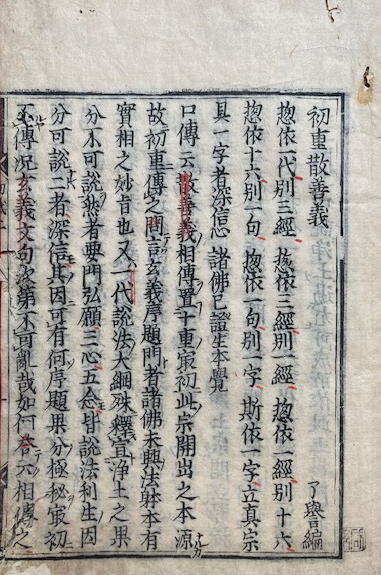 初重散善義
了譽編
惣依一代別三經 惣依三經別一經 惣依一經別十六
惣依十六別一句 惣依一句別一字 斯依一字立真宗
具一字者深信心 諸佛已證生本覺
口傳云散善義相傳置十重㝡初此宗開出之本源
故初重傳之問言玄義序題門者諸佛未興法躰本有
實相之妙旨也又一代說法大綱殊釋宣淨土之果
分不可說者要門弘願三心五念皆說法利生因
分可說二者深信其因可有何序題果分極秘㝡初
不傳況玄義文句次第不可亂哉如何 答云相傳之